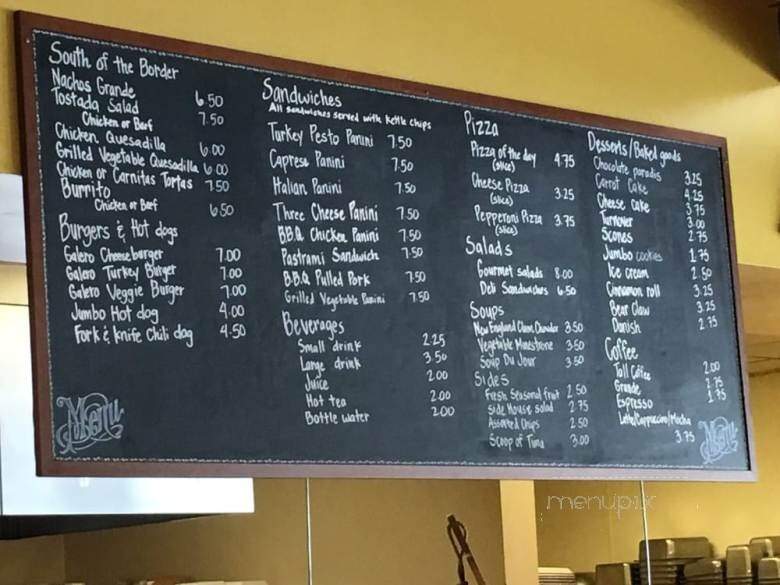 South of the Border
Nachos Grande 6.50
Tostada Salad 7.50
Chicken or Beef
Chicken Quesadilla 6.00
Grilled Vegetable Quesadilla 6.00
Chicken or Carnitas Tortas 7.50
Burrito
Chicken or Beef 6.50
Burgers & Hot dogs
Galero Cheeseburger 7.00
Galero Turkey Burger 7.00
Galero Veggie Burger 7.00
Jumbo Hot dog 4.00
Fork & Knife Chili dog 4.50
Menu
Sandwiches
All sandwiches served with kettle chips
Turkey Pesto Panini 7.50
Caprese Panini 7.50
Italian Panini 7.50
Three Cheese Panini 7.50
B.B.Q. Chicken Panini 7.50
Pastrami Sandwich 7.50
B.B.Q. Pulled Pork 7.50
Grilled Vegetable Panini 7.50
Beverages
Small drink 2.25
Large drink 3.50
Juice 2.00
Hot tea 2.00
Bottle water 2.00
Pizza
Pizza of the day 4.75
(slice)
Cheese Pizza 3.25
(slice)
Pepperoni Pizza 3.75
(slice)
Salads
Gourmet salads 8.00
Deli Sandwiches 6.50
Soups
New England Clam Chowder 3.50
Vegetable Minestrone 3.50
Soup Du Jour 3.50
Sides
Fresh Seasonal fruit 2.50
Side House salad 2.75
Assorted Chips 2.50
Scoop of Tuna 3.00
Desserts/Baked goods
Chocolate paradis 3.25
Carrot Cake 4.25
Cheese cake 3.75
Turnover 3.00
Scones 2.75
Jumbo cookies 1.75
Ice cream 2.50
Cinnamon roll 3.25
Bear Claw 3.25
Danish 2.75
Coffee
Tall Coffee 2.00
Grande 2.75
Espresso 1.75
Latte/Cappuccino/Mocha
3.75
Menu
menupix